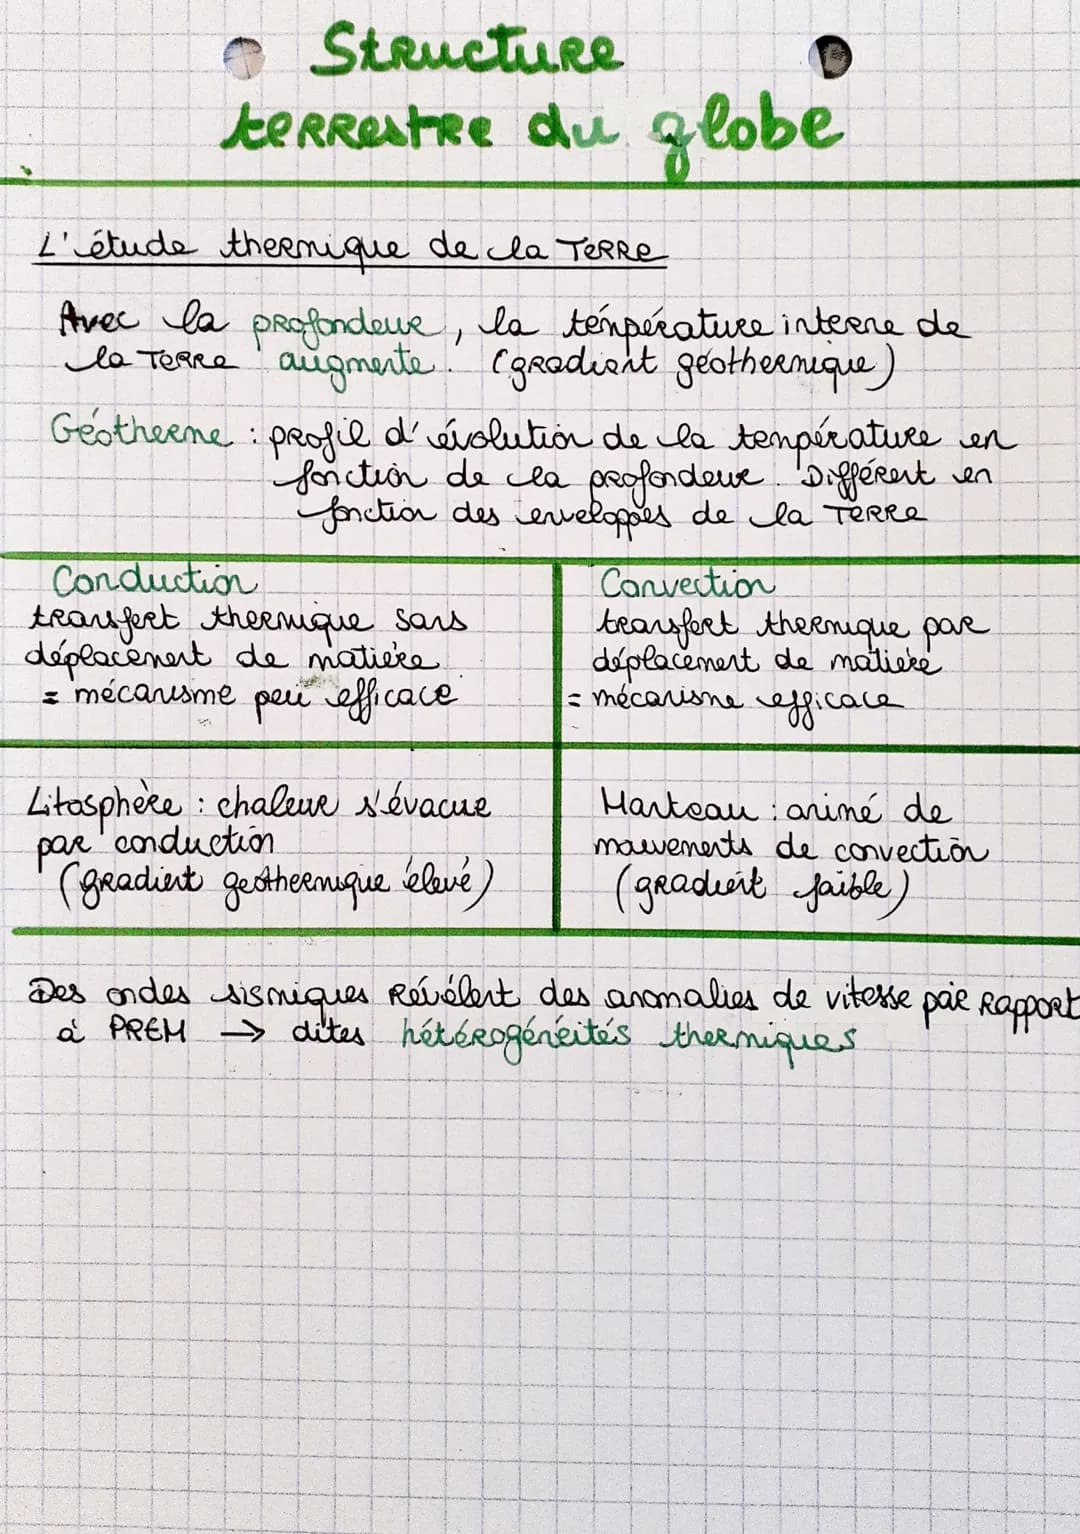 Structure
terrestre du globe
L'étude thermique de la Terre
Avec la profondeur, la température interne de
la Terre augmente. (gradient géothermique)
Géotherme : profil d'évolution de la température en
fonction de la profondeur. Différent en
fonction des enveloppes de la Terre
Conduction
transfert thermique sans
déplacement de matière
= mécanisme peu efficace
Convection
transfert thermique par
déplacement de matière
= mécanisme efficace
Litosphère : chaleur s'évacue
par conduction
(gradient geothermique élevé)
Manteau : animé de
mouvements de convection
(gradient faible)
Des ondes sismiques révèlent des anomalies de vitesse par rapport
à PREM → dites hétérogénéités thermiques